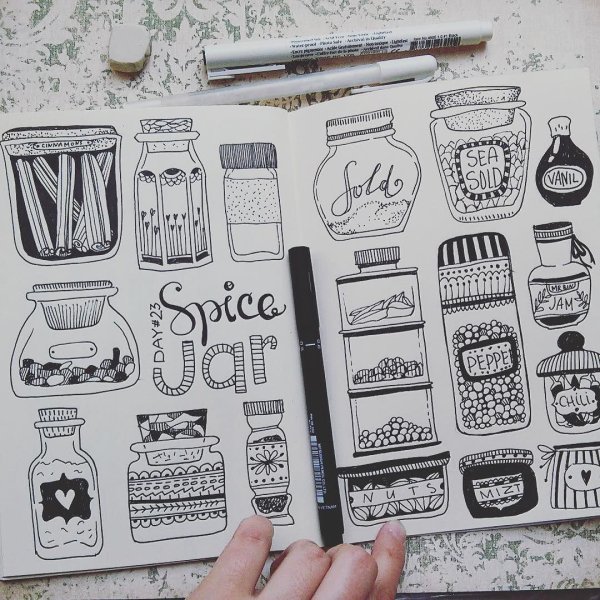 CINNAMONS
DAY#23
Spice
Jar
Sold
SEA
SOLD
VANIL
MR BIN
JAM
PEPPE
CHILI
NUTS
MIZI